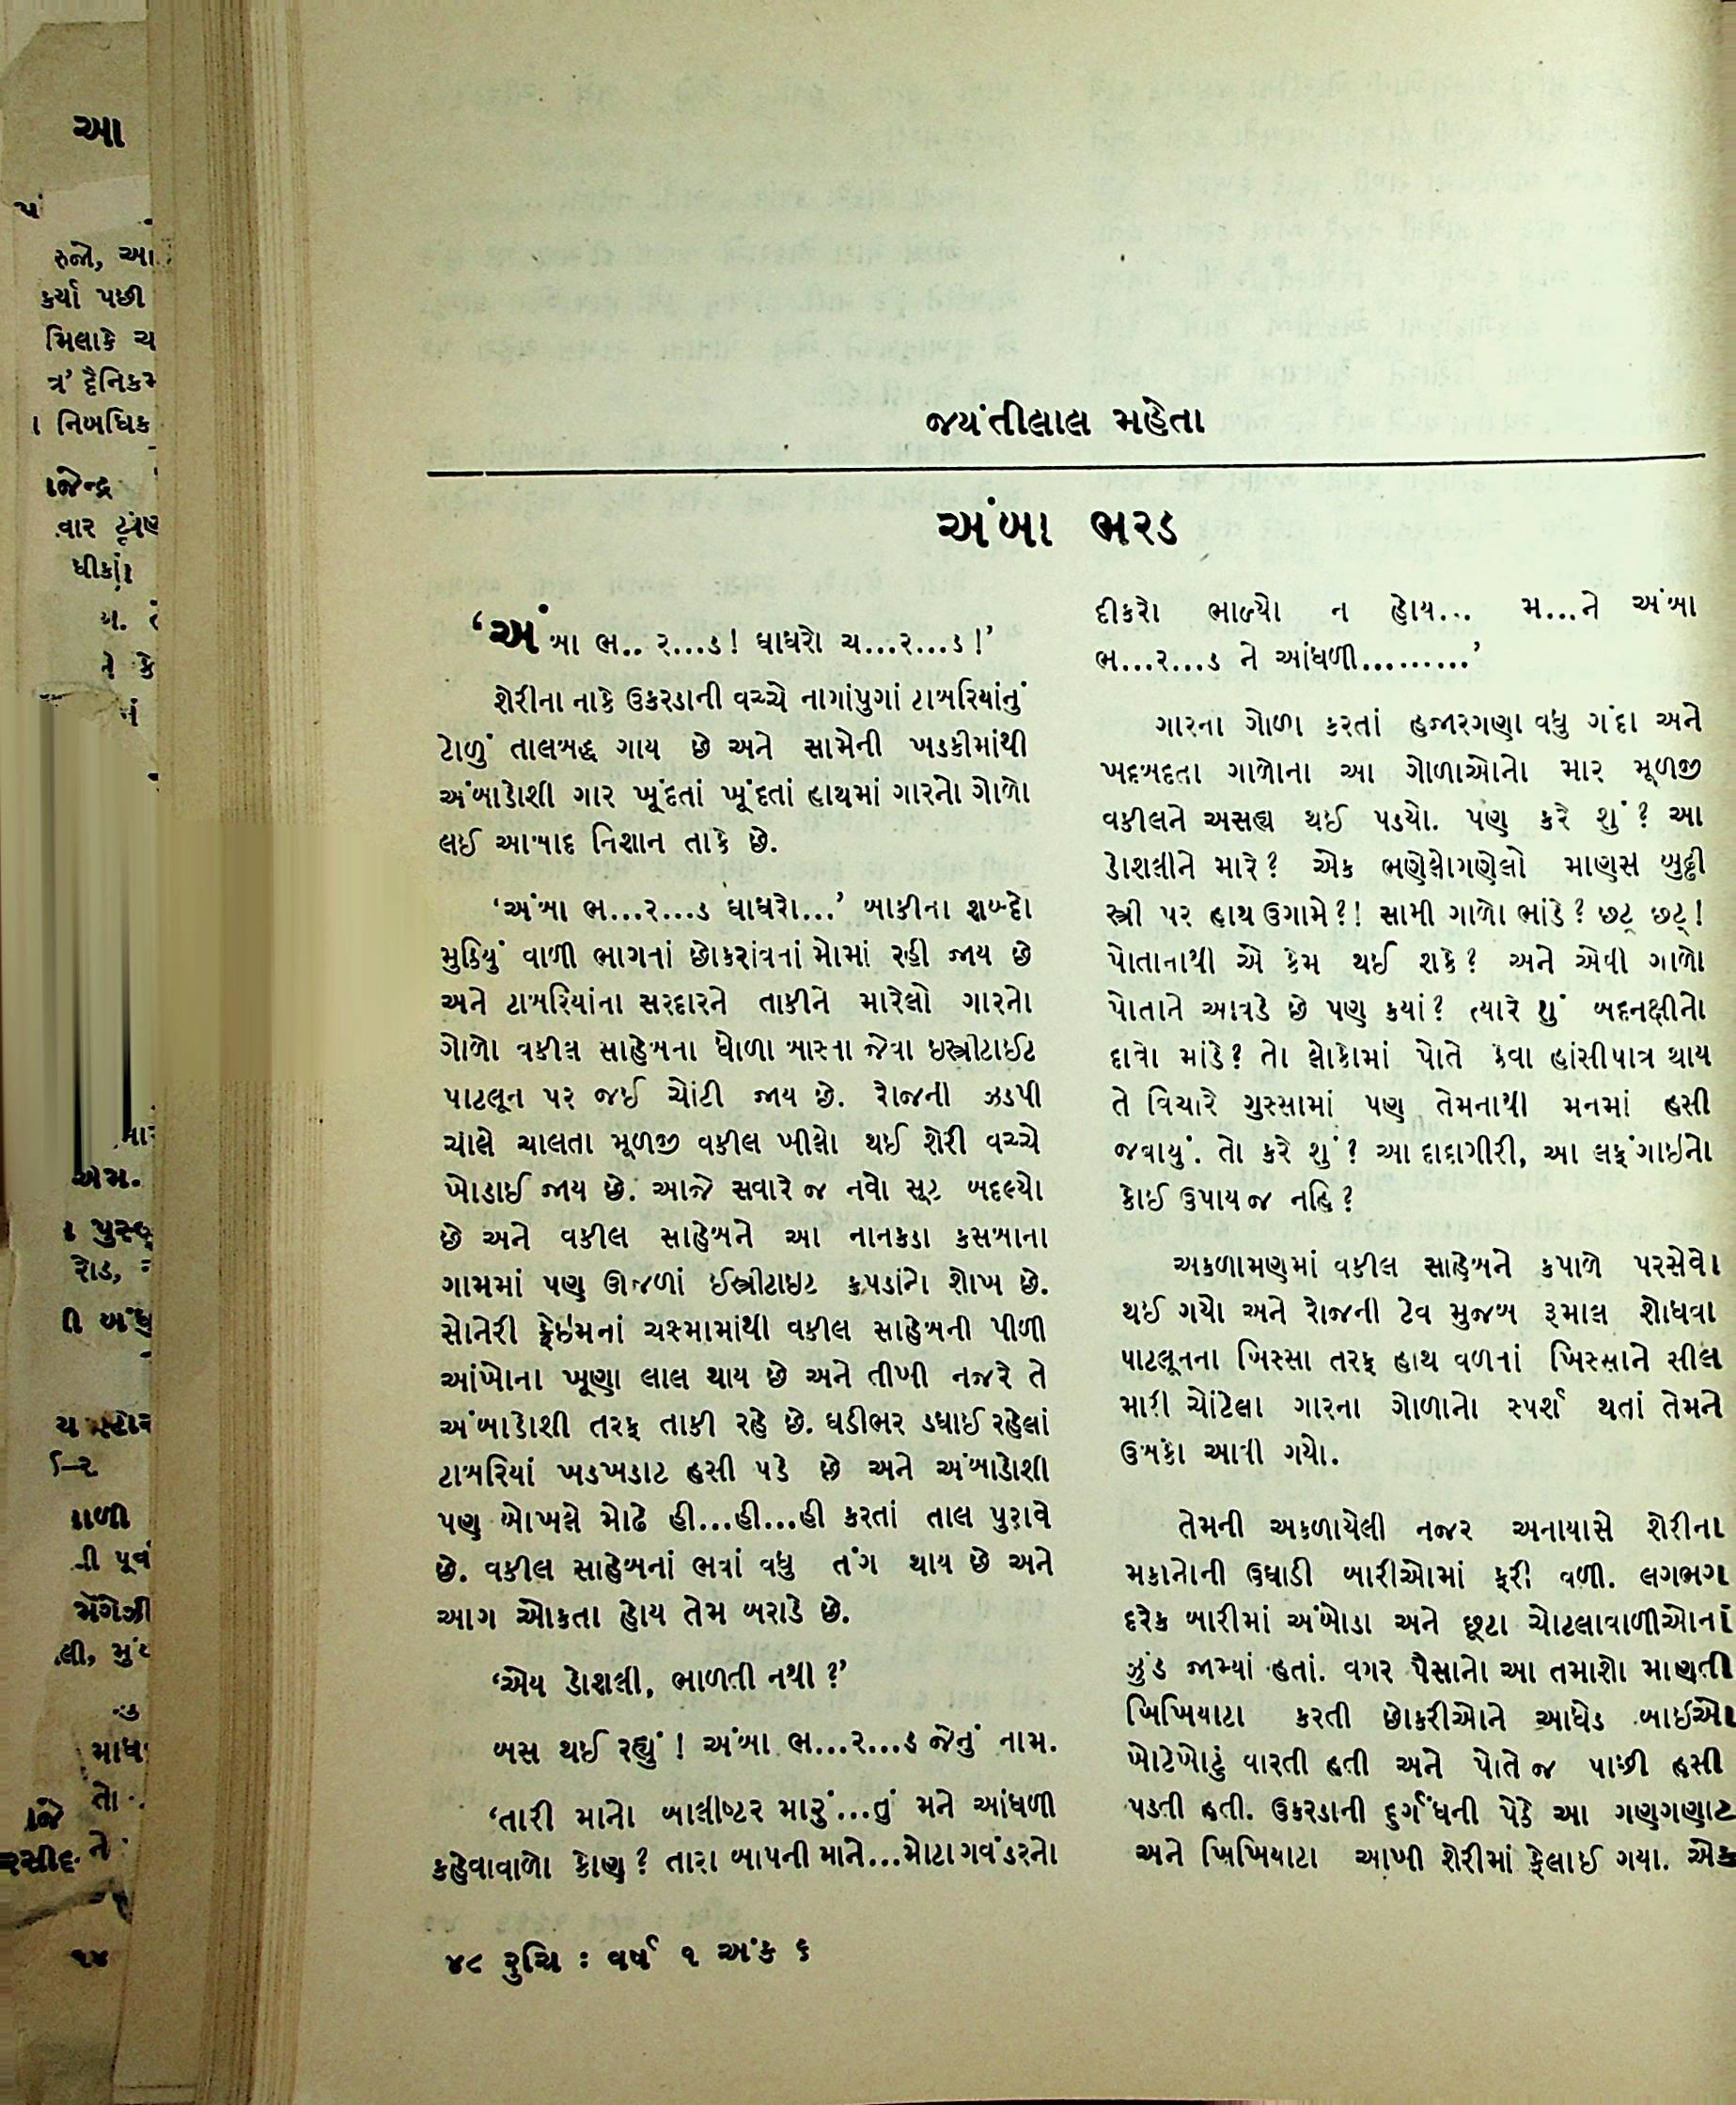 જયંતીલાલ મહેતા
અંબા ભરડ
‘અંબા ભ.. ર...ડ! ઘાઘરો ચ...ર...ડ!’
શેરીના નાકે ઉકરડાની વચ્ચે નાગાંપુગાં ટાબરિયાંનું
ટોળું તાલબદ્ધ ગાય છે અને સામેની ખડકીમાંથી
અંબાડોશી ગાર ખૂંદતાં ખૂંદતાં હાથમાં ગારનો ગોળો
લઈ આબાદ નિશાન તાકે છે.
‘અંબા ભ...ર...ડ ઘાઘરો...’ બાકીના શબ્દો
મુઠિયું વાળી ભાગતાં છોકરાંવનાં મોમાં રહી જાય છે
અને ટાબરિયાંના સરદારને તાકીને મારેલો ગારનો
ગોળો વકીલ સાહેબના ધોળા બાસ્તા જેવા ઇસ્ત્રીટાઈટ
પાટલૂન પર જઈ ચોંટી જાય છે. રોજની ઝડપી
ચાલે ચાલતા મૂળજી વકીલ ખીલો થઈ શેરી વચ્ચે
ખોડાઈ જાય છે. આજે સવારે જ નવો સૂટ બદલ્યો
છે અને વકીલ સાહેબને આ નાનકડા કસબાના
ગામમાં પણ ઊજળાં ઈસ્ત્રીટાઇટ કપડાંનો શોખ છે.
સોનેરી ફ્રેઇમનાં ચશ્મામાંથી વકીલ સાહેબની પીળી
આંખોના ખૂણા લાલ થાય છે અને તીખી નજરે તે
અંબાડોશી તરફ તાકી રહે છે. ઘડીભર ડઘાઈ રહેલાં
ટાબરિયાં ખડખડાટ હસી પડે છે અને અંબાડોશી
પણ બોખલે મોઢે હી...હી...હી કરતાં તાલ પુરાવે
છે. વકીલ સાહેબનાં ભવાં વધુ તંગ થાય છે અને
આગ ઓકતા હોય તેમ બરાડે છે.
‘એય ડોશલી, ભાળતી નથી?’
બસ થઈ રહ્યું! અંબા ભ...ર...ડ જેનું નામ.
‘તારી માનો બાલીષ્ટર મારું...તું મને આંધળી
કહેવાવાળો કોણ? તારા બાપની માને...મોટા ગવંડરનો
દીકરો ભાળ્યો ન હોય... મ...ને અંબા
ભ...ર...ડ ને આંધળી.........’
ગારના ગોળા કરતાં હજારગણા વધુ ગંદા અને
ખદબદતા ગાળોના આ ગોળાઓનો માર મૂળજી
વકીલને અસહ્ય થઈ પડયો. પણ કરે શું? આ
ડોશલીને મારે? એક ભણેલોગણેલો માણસ બુઢ્ઢી
સ્ત્રી પર હાથ ઉગામે?! સામી ગાળો ભાંડે? છટ્ છટ્!
પોતાનાથી એ કેમ થઈ શકે? અને એવી ગાળો
પોતાને આવડે છે પણ કયાં? ત્યારે શું બદનક્ષીનો
દાવો માંડે? તો લોકોમાં પોતે કેવા હાંસીપાત્ર થાય
તે વિચારે ગુસ્સામાં પણ તેમનાથી મનમાં હસી
જવાયું. તો કરે શું? આ દાદાગીરી, આ લફંગાઈનો
કોઈ ઉપાય જ નહિ?
અકળામણમાં વકીલ સાહેબને કપાળે પરસેવો
થઈ ગયો અને રોજની ટેવ મુજબ રૂમાલ શોધવા
પાટલૂનના ખિસ્સા તરફ હાથ વળતાં ખિસ્સાને સીલ
મારી ચોંટેલા ગારના ગોળાનો સ્પર્શ થતાં તેમને
ઉબકો આવી ગયો.
તેમની અકળાયેલી નજર અનાયાસે શેરીના
મકાનોની ઉઘાડી બારીઓમાં ફરી વળી. લગભગ
દરેક બારીમાં અંબોડા અને છૂટા ચોટલાવાળીઓનાં
ઝુંડ જામ્યાં હતાં. વગર પૈસાનો આ તમાશો માણતી
ખિખિયાટા કરતી છોકરીઓને આધેડ બાઈઓ
ખોટેખોટું વારતી હતી અને પોતે જ પાછી હસી
પડતી હતી. ઉકરડાની દુર્ગંધની પેઠે આ ગણગણાટ
અને ખિખિયાટા આખી શેરીમાં ફેલાઈ ગયા. એક
૪૮ રુચિ : વર્ષ ૧ અંક ૬
આ
કર્યા પછી
મિલાકે
વાર
એમ.
રોડ,
૧૪